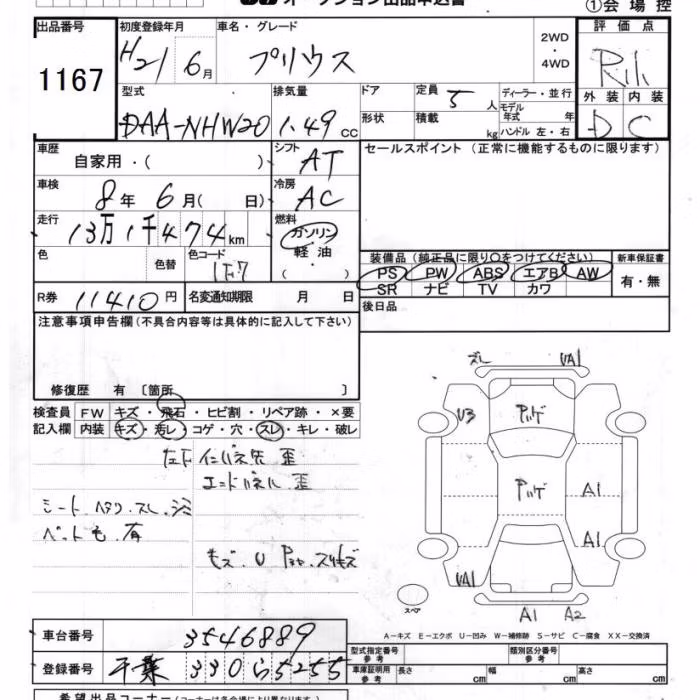 オークション出品申込書
①会場控
出品番号 初度登録年月 車名・グレード 2WD 評価点
1167 H21 6月 プリウス ・4WD
型式 排気量 ドア 定員 5人 ディーラー・並行 外装 内装
DAA-NHW20 1.49cc 形状 積載 kg モデル年式 年 D C
ハンドル 左・右
車歴 自家用・( ) シフト AT セールスポイント(正常に機能するものに限ります)
車検 8年6月( 日) 冷房 AC
走行 13万1千474km 燃料 ガソリン
軽油
( )
色 色替 色コード 1F7 装備品(純正品に限り○をつけてください) 新車保証書
PS PW ABS エアB AW 有・無
SR ナビ TV カワ
R券 11410円 名変通知期限 月 日 後日品
注意事項申告欄(不具合内容等は具体的に記入して下さい)
修復歴 有 〔箇所 〕
検査員 FW キズ・飛石・ヒビ割・リペア跡・×要
記入欄 内装 キズ・汚レ・コゲ・穴・スレ・キレ・破レ
ズレ UA1
U3
左F インパネ先 歪
エンドパネル 歪
シート ヘタリ スレ シミ
ペット毛 有
A1
A1
UA1
スペア
A1 A2
A-キズ E-エクボ U-凹み W-補修跡 S-サビ C-腐食 XX-交換済
車台番号 3546889
登録番号 千葉 330 ら 5255
型式指定番号 参考 類別区分番号 参考
車庫証明用 参考 長さ cm 幅 cm 高さ cm
希望出品コーナー